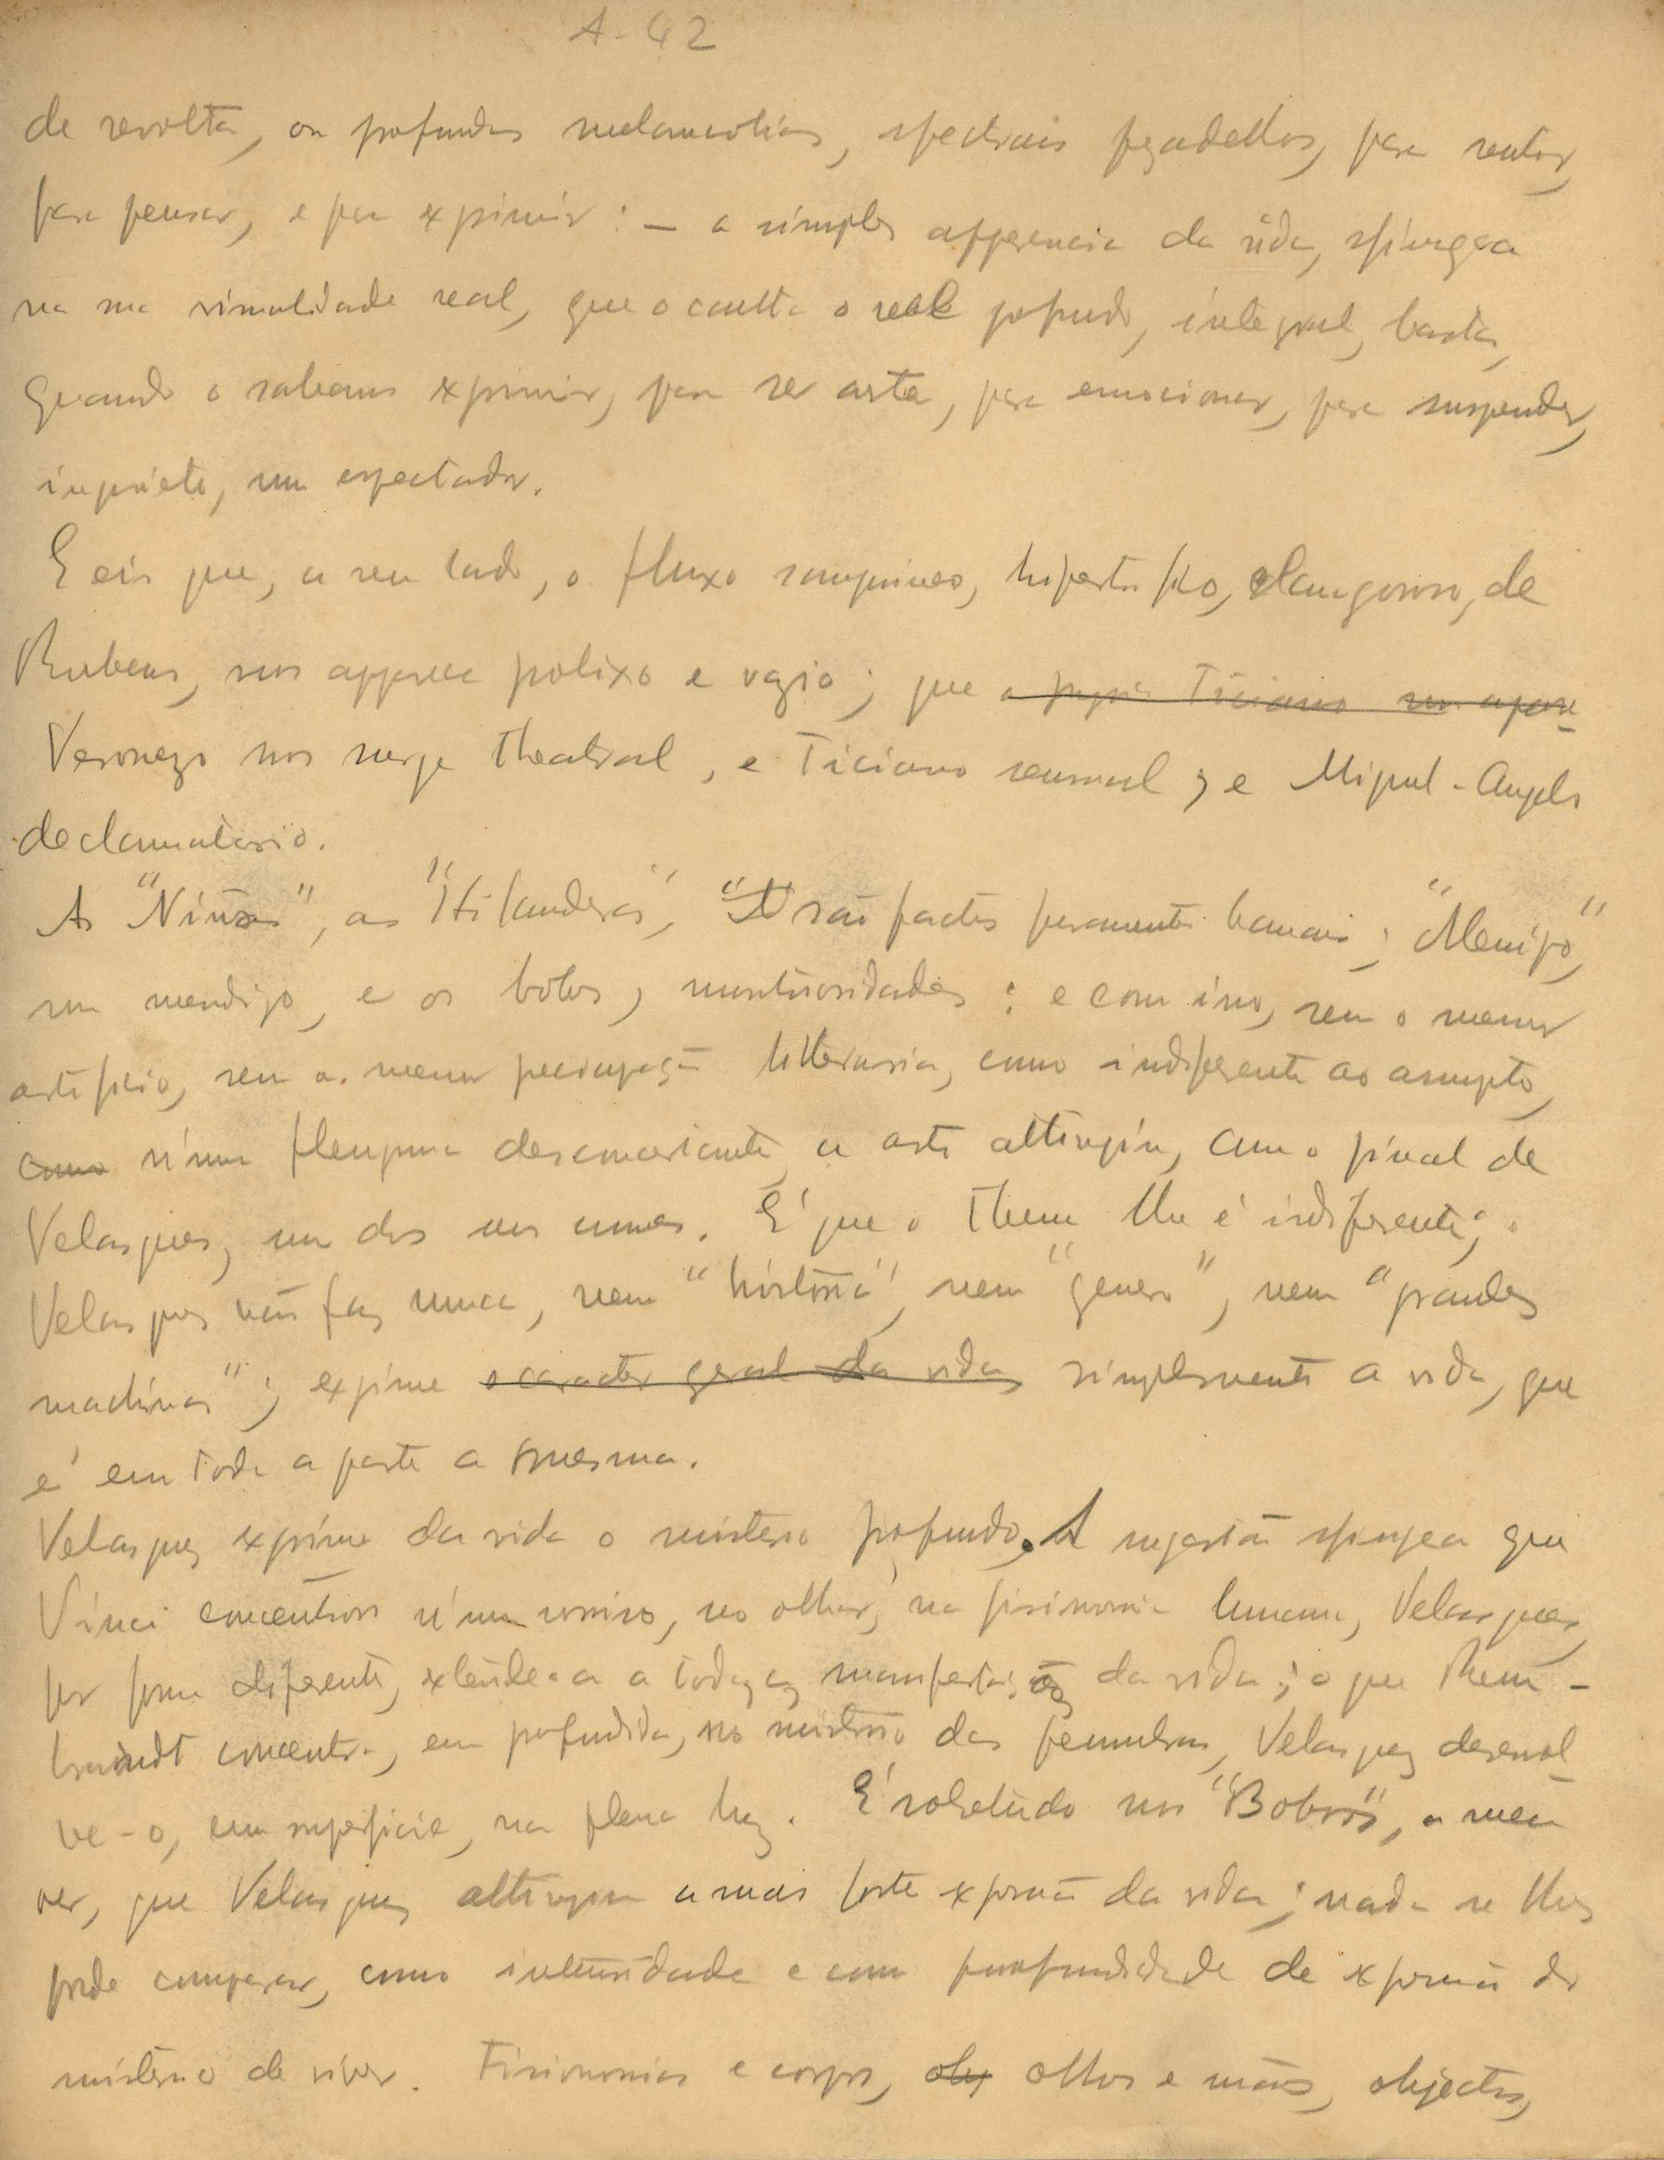 A-42
de revolta, ou profundas melancolias, spectrais pezadellos, para sentir,
para pensar, e para exprimir: — a simples apparencia da vida, sfingea
na sua visualidade real, que occulta o real profundo, integral, basta,
quando a sabemos exprimir, para ser arte, para emocionar, para suspender,
inquieto, um espectador.
E eis que, a seu lado, o fluxo sanguineo, hipertrofico, clangoroso, de
Rubens, nos apparece prolixo e vazio; que o proprio Ticiano nos apare-
Veronezo nos surge theatral, e Ticiano sensual; e Miguel-Angelo
declamatorio.
As "Niñas", as "Hilanderas", são factos puramente banais; "Menipo",
um mendigo, e os bobos, monstruosidades: e com isso, sem o menor
artificio, sem a menor preocupação litteraria, como indiferente ao assumpto,
como n'uma fleugma desconcertante, a arte attingiu, com o pincel de
Velasquez, um dos seus cumes. É que o thema lhe é indiferente;
Velasquez não faz nunca, nem "história", nem "genero", nem "grandes
machinas"; exprime o caracter geral da vida, simplesmente a vida, que
é em toda a parte a mesma.
Velasquez exprime da vida o misterio profundo. A sugestão sfingea que
Vinci concentrou n'um sorriso, no olhar, na fisionomia humana, Velasquez,
por forma diferente, extende-a a todas as manifestações da vida; o que Rem-
brandt concentra, em profundida, no misterio das penumbras, Velasquez desenvol-
ve-o, em superficie, na plena luz. É sobretudo nos "Bobos", a meu
ver, que Velasquez attingiu a mais forte expressão da vida; nada se lhes
pode comparar, como intensidade e com profundidade de expressão do
misterio de viver. Fisionomias e corpos, olhos e mãos, objectos,